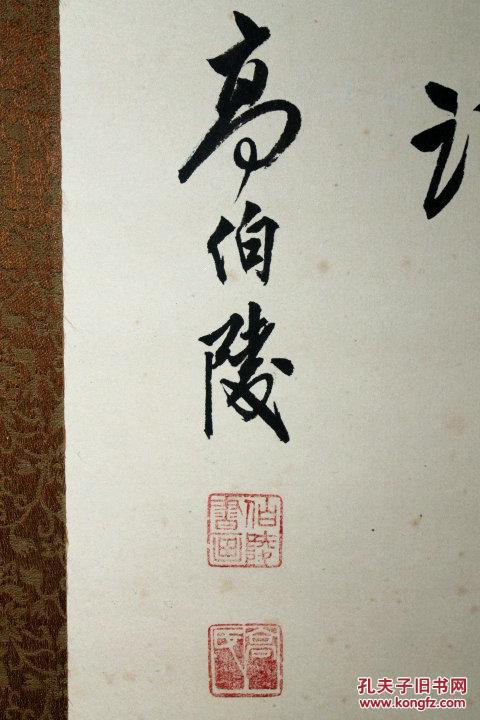 高伯陵
伯陵書画
高氏
孔夫子旧书网
www.kongfz.com